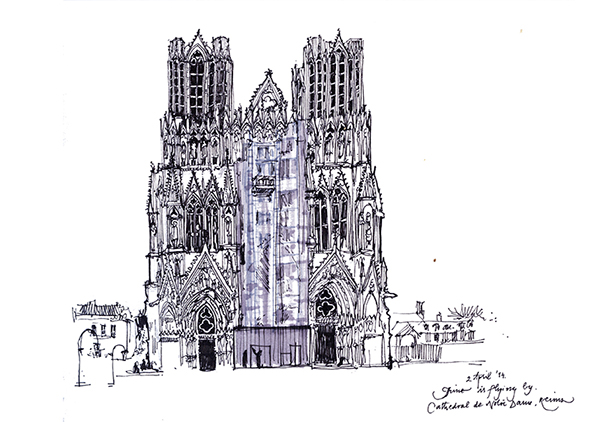 2 April '14
is flying by.
Cathedral de Notre Dame, Reims